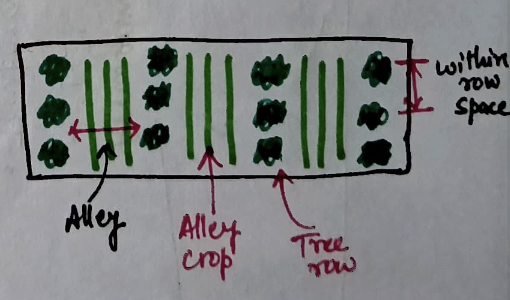 within
row
space
Alley
Alley
crop
Tree
row